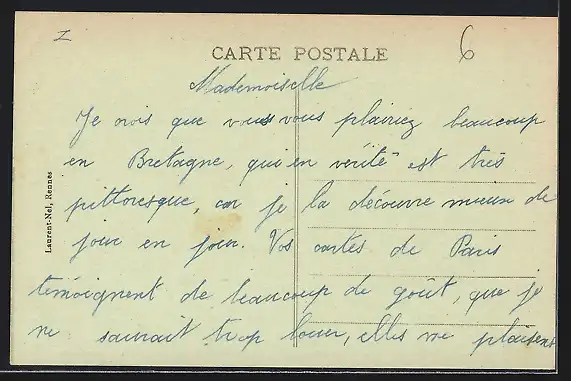 CARTE POSTALE
6
Mademoiselle
Je crois que vous vous plairiez beaucoup
en Bretagne, qui en vérité est très
pittoresque, car je la découvre mieux de
jour en jour. Vos cartes de Paris
témoignent de beaucoup de goût, que je
ne saurait trop louer, elles me plaisent
Laurent-Nel, Rennes